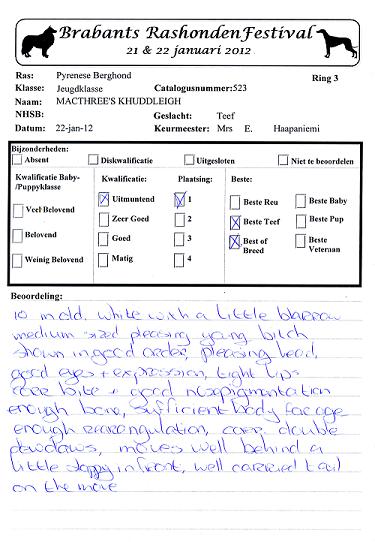 Brabants RashondenFestival
21 & 22 januari 2012
Ras: Pyrenese Berghond Ring 3
Klasse: Jeugdklasse Catalogusnummer:523
Naam: MACTHREE'S KHUDDLEIGH
NHSB: Geslacht: Teef
Datum: 22-jan-12 Keurmeester: Mrs E. Haapaniemi
Bijzonderheden:
Absent Diskwalificatie Uitgesloten Niet te beoordelen
Kwalificatie Baby-/Puppyklasse Kwalificatie: Plaatsing: Beste:
Veel Belovend
Belovend
Weinig Belovend
Uitmuntend
Zeer Goed
Goed
Matig
1
2
3
4
Beste Reu
Beste Teef
Best of Breed
Beste Baby
Beste Pup
Beste Veteraan
Beoordeling:
10 m old. white with a little
medium sized pleasing young bitch
shown in good order, pleasing head,
good eyes + expression, tight lips
corr bite + good pigmentation
enough bone, sufficient body for age
enough rearangulation, corr. double
dewclaws, moves well behind a
little sloppy in front, well carried tail
on the move